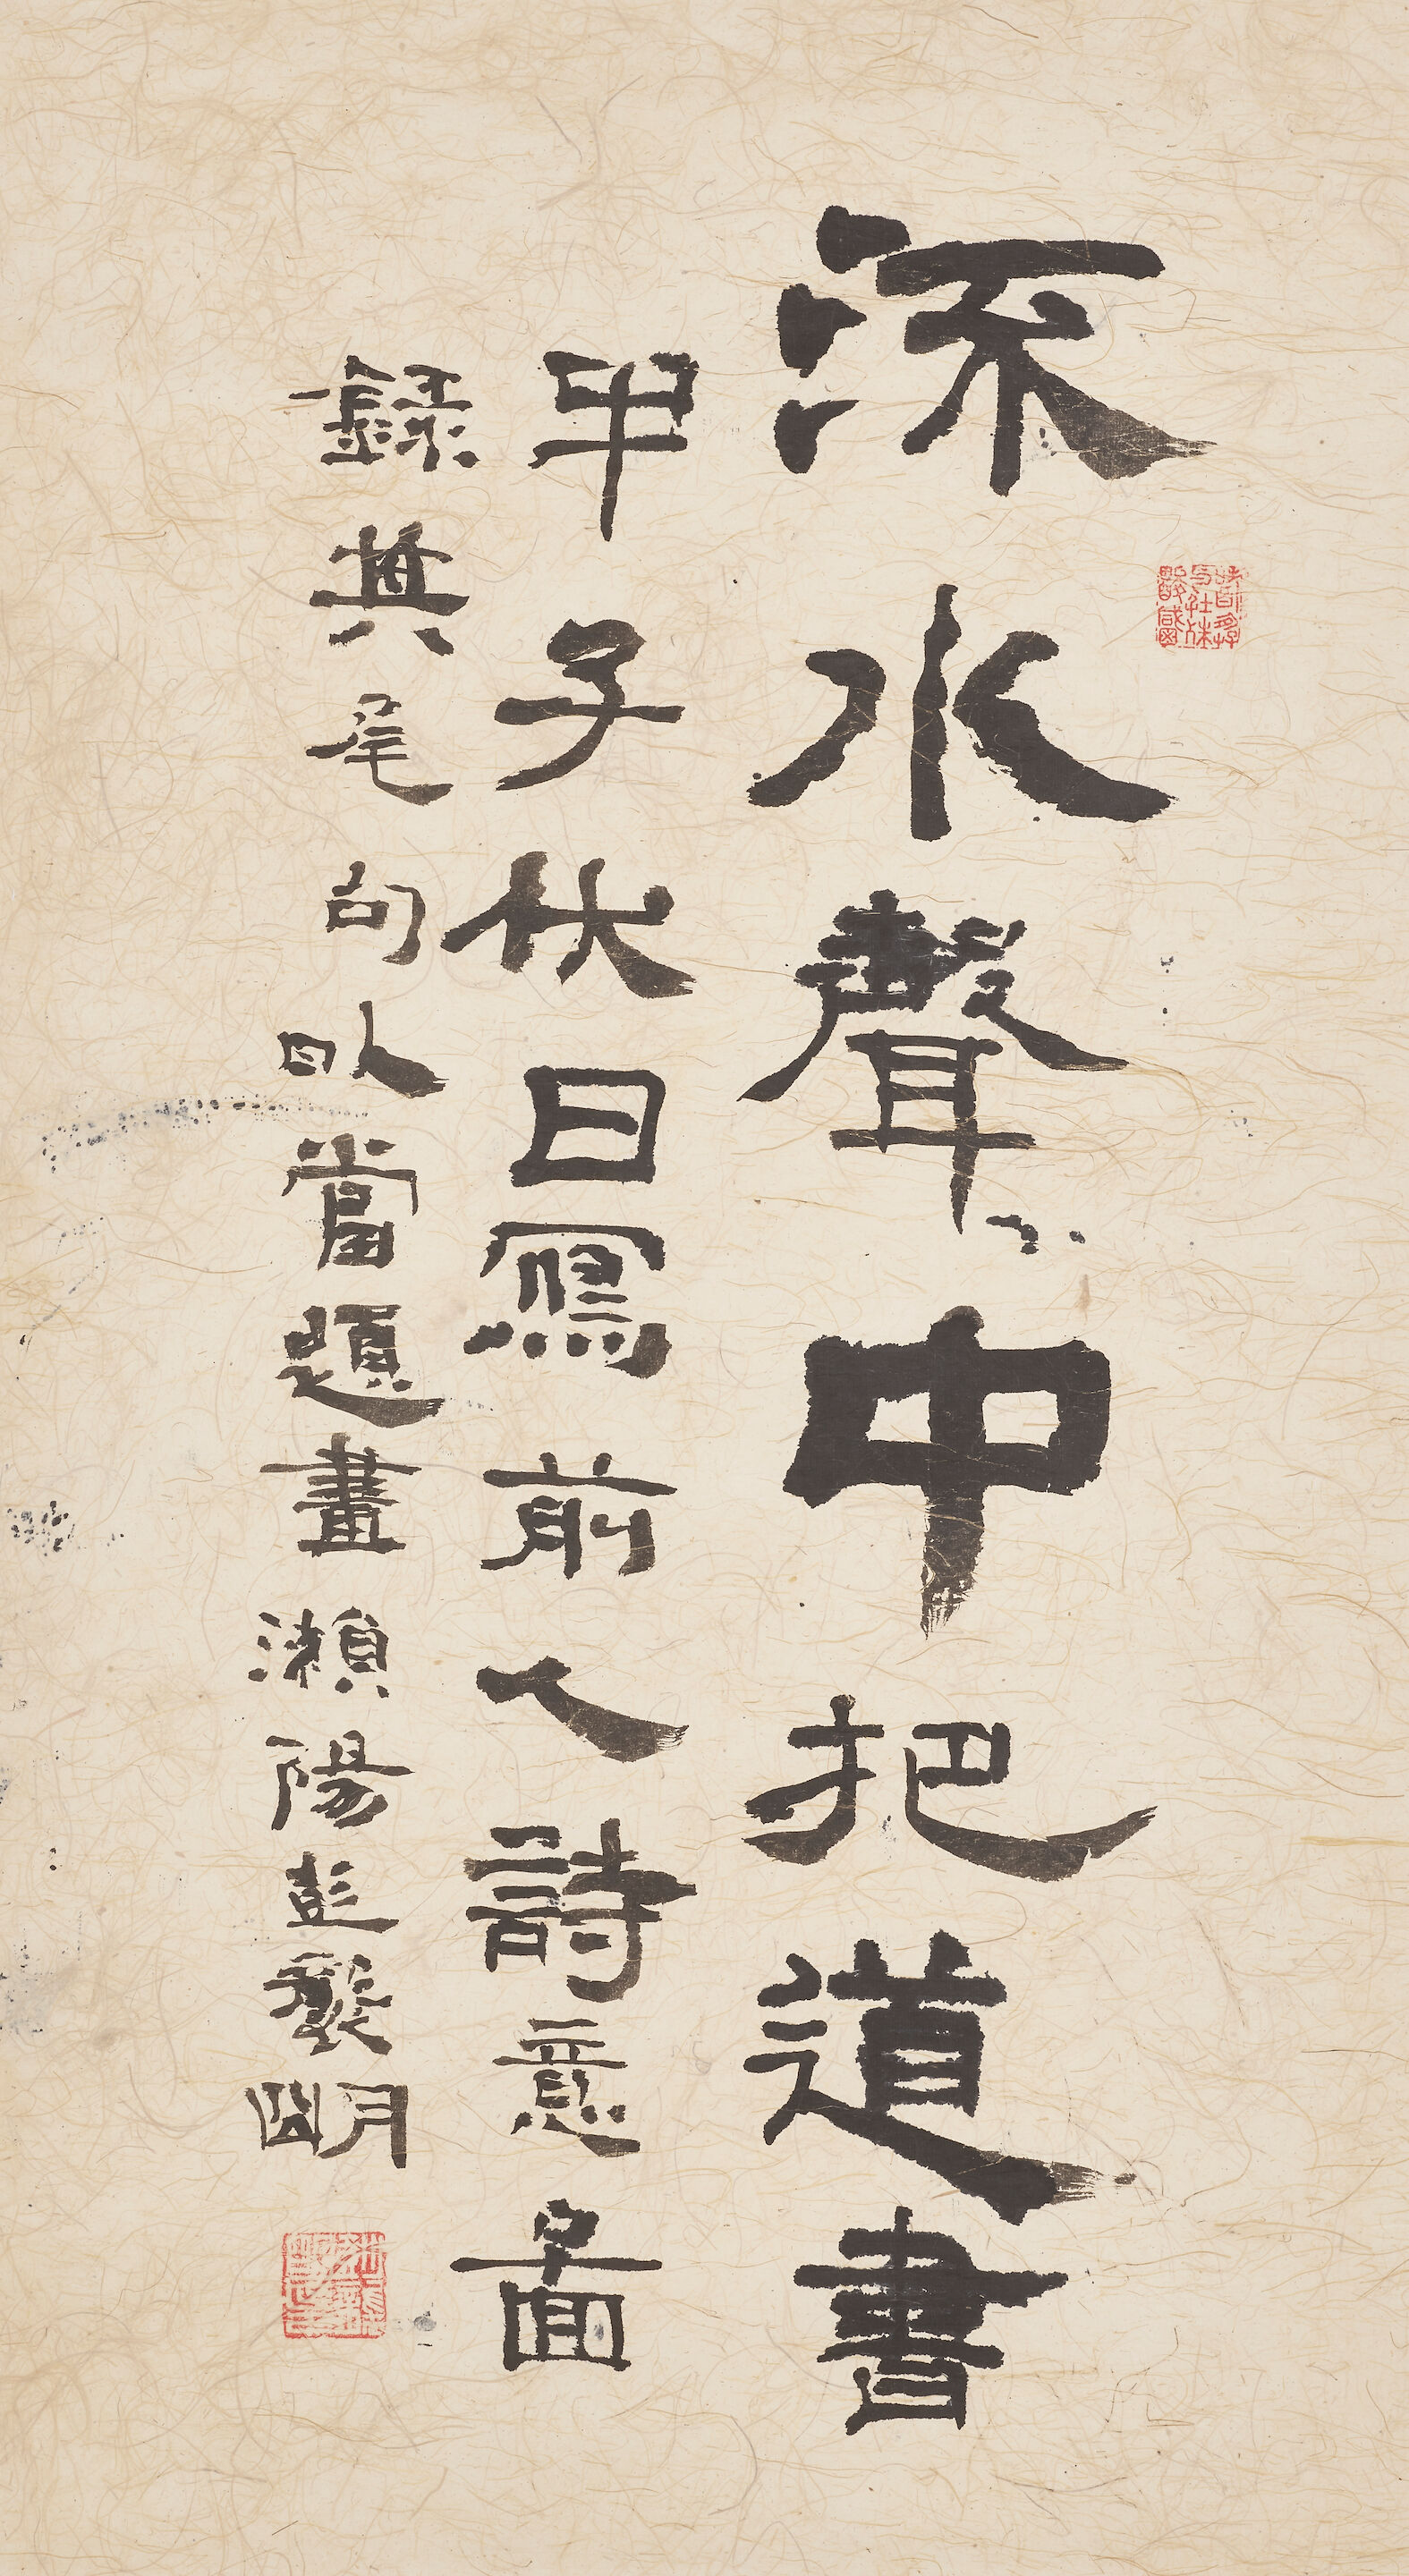 流水聲中把道書
甲子伏日寫前人詩意啚
錄其尾句以當題畫瀨陽彭襲明